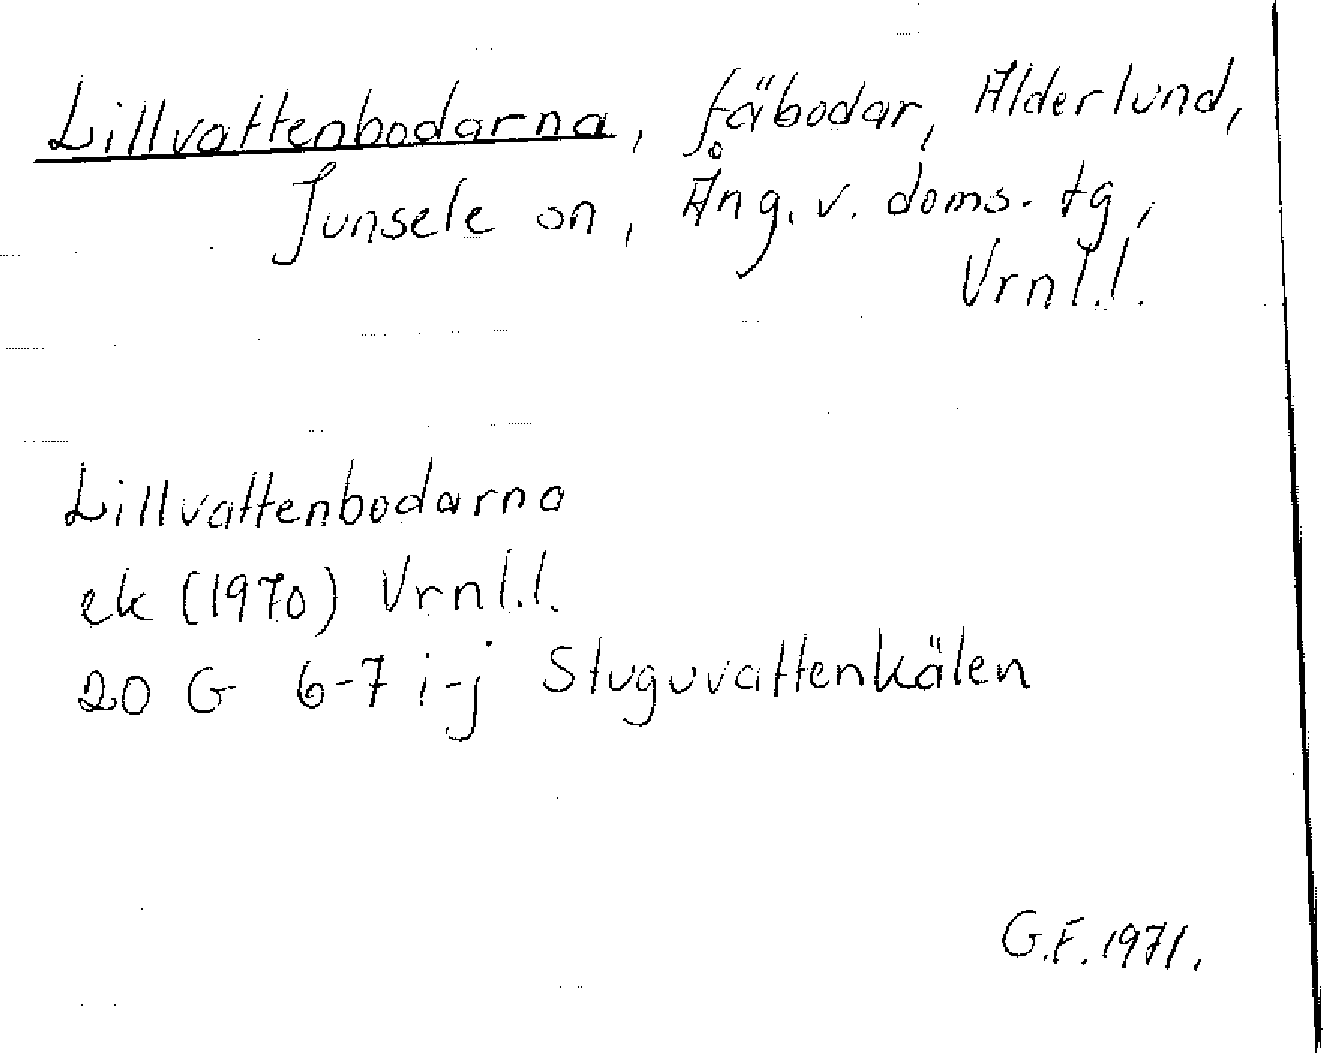 Lillvattenbodarna, fäbodar, Alderlund,
Junsele sn, Ång. v. doms. tg,
Vrnl.l.
Lillvattenbodarna
ek (1970) Vrnl.l.
20 G 6-7 i-j Stuguvattenkälen
G.F. 1971.